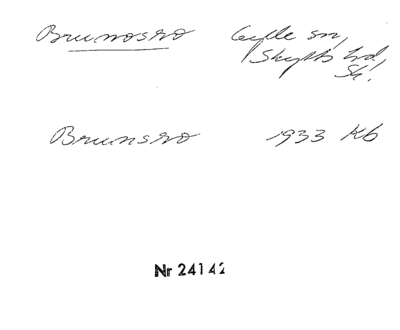 Brunosro Gylle sn,
Skytts hd,
Sk!
Brunsro 1933 Kb
Nr 24142